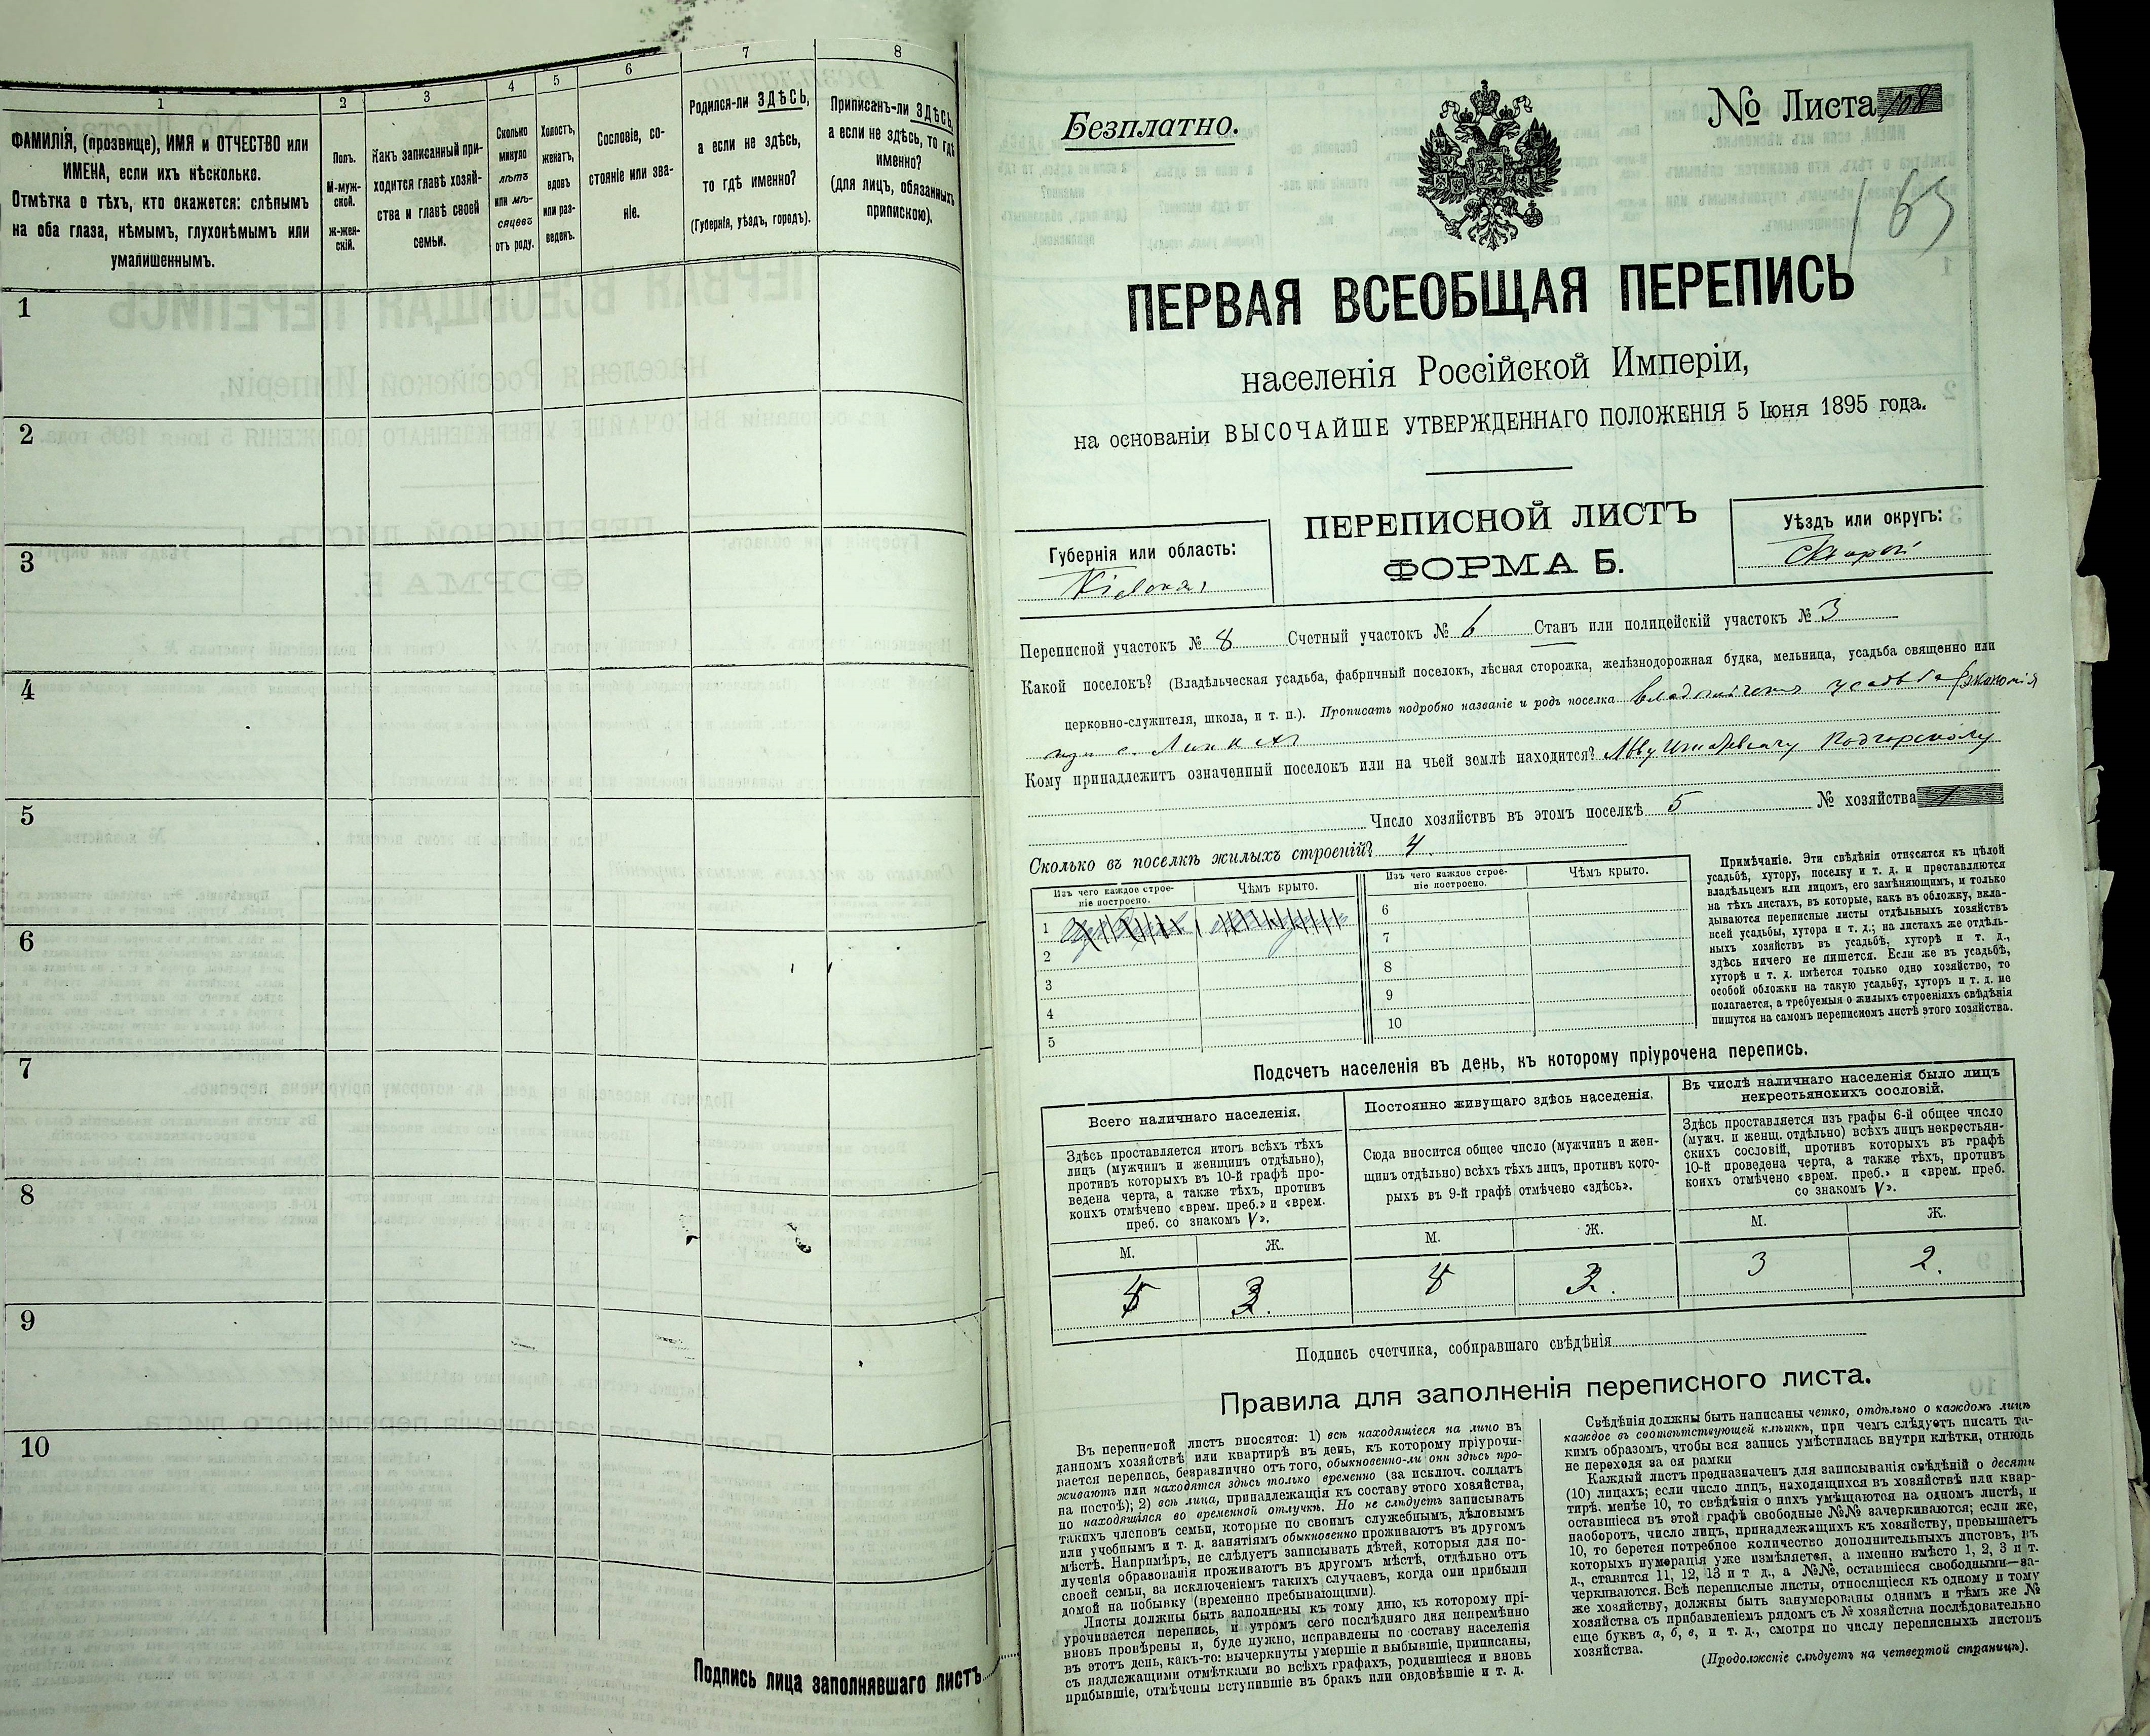 1
2
3
4
5
6
7
8
ФАМИЛІЯ, (прозвище), ИМЯ и ОТЧЕСТВО или
ИМЕНА, если ихъ нѣсколько.
Отмѣтка о тѣхъ, кто окажется: слѣпымъ
на оба глаза, нѣмымъ, глухонѣмымъ или
умалишеннымъ.
Полъ.
М-муж-
ской.
Ж-жен-
скій.
Какъ записанный при-
ходится главѣ хозяй-
ства и главѣ своей
семьи.
Сколько
минуло
лѣтъ
или мѣ-
сяцевъ
отъ роду.
Холостъ,
женатъ,
вдовъ
или раз-
веденъ.
Сословіе, со-
стояніе или зва-
ніе.
Родился-ли ЗДѢСЬ,
а если не здѣсь,
то гдѣ именно?
(Губернія, уѣздъ, городъ).
Приписанъ-ли ЗДѢСЬ,
а если не здѣсь, то гдѣ
именно?
(для лицъ, обязанныхъ
припискою).
1
2
3
4
5
6
7
8
9
10
Подпись лица заполнявшаго листъ
Безплатно.
№ Листа 108
165
ПЕРВАЯ ВСЕОБЩАЯ ПЕРЕПИСЬ
населенія Россійской Имперіи,
на основаніи ВЫСОЧАЙШЕ УТВЕРЖДЕННАГО ПОЛОЖЕНІЯ 5 Іюня 1895 года.
ПЕРЕПИСНОЙ ЛИСТЪ
ФОРМА Б.
Губернія или область:
Кіевская
Уѣздъ или округъ:
Переписной участокъ № 8 Счетный участокъ № 6 Станъ или полицейскій участокъ № 3
Какой поселокъ? (Владѣльческая усадьба, фабричный поселокъ, лѣсная сторожка, желѣзнодорожная будка, мельница, усадьба священно или
церковно-служителя, школа, и т. п.). Прописать подробно названіе и родъ поселка усадьба Экономія
при с.
Кому принадлежитъ означенный поселокъ или на чьей землѣ находится? Льву Подгорскому
Число хозяйствъ въ этомъ поселкѣ 5 № хозяйства 1
Сколько въ поселкѣ жилыхъ строеній? 4
Изъ чего каждое строе-
ніе построено.
Чѣмъ крыто.
Изъ чего каждое строе-
ніе построено.
Чѣмъ крыто.
1
2
3
4
5
6
7
8
9
10
Примѣчаніе. Эти свѣдѣнія относятся къ цѣлой
усадьбѣ, хутору, поселку и т. д. и преставляются
владѣльцемъ или лицомъ, его замѣняющимъ, и только
на тѣхъ листахъ, въ которые, какъ въ обложку, вкла-
дываются переписные листы отдѣльныхъ хозяйствъ
всей усадьбы, хутора и т. д.; на листахъ же отдѣль-
ныхъ хозяйствъ въ усадьбѣ, хуторѣ и т. д.,
здѣсь ничего не пишется. Если же въ усадьбѣ,
хуторѣ и т. д. имѣется только одно хозяйство, то
особой обложки на такую усадьбу, хуторъ и т. д. не
полагается, а требуемыя о жилыхъ строеніяхъ свѣдѣнія
пишутся на самомъ переписномъ листѣ этого хозяйства.
Подсчетъ населенія въ день, къ которому пріурочена перепись.
Всего наличнаго населенія.
Здѣсь проставляется итогъ всѣхъ тѣхъ
лицъ (мужчинъ и женщинъ отдѣльно),
противъ которыхъ въ 10-й графѣ про-
ведена черта, а также тѣхъ, противъ
коихъ отмѣчено «врем. преб.» и «врем.
преб. со знакомъ V».
Постоянно живущаго здѣсь населенія.
Сюда вносится общее число (мужчинъ и жен-
щинъ отдѣльно) всѣхъ тѣхъ лицъ, противъ кото-
рыхъ въ 9-й графѣ отмѣчено «здѣсь».
Въ числѣ наличнаго населенія было лицъ
некрестьянскихъ сословій.
Здѣсь проставляется изъ графы 6-й общее число
(мужч. и женщ. отдѣльно) всѣхъ лицъ некрестьян-
скихъ сословій, противъ которыхъ въ графѣ
10-й проведена черта, а также тѣхъ, противъ
коихъ отмѣчено «врем. преб.» и «врем. преб.
со знакомъ V».
М. Ж. М. Ж. М. Ж.
3 2.
Подпись счетчика, собиравшаго свѣдѣнія
Правила для заполненія переписного листа.
Въ переписной листъ вносятся: 1) всѣ находящіеся на лицо въ
данномъ хозяйствѣ или квартирѣ въ день, къ которому пріурочи-
вается перепись, безразлично отъ того, обыкновенно-ли они здѣсь про-
живаютъ или находятся здѣсь только временно (за исключ. солдатъ
на постоѣ); 2) всѣ лица, принадлежащія къ составу этого хозяйства,
но находящіяся во временной отлучкѣ. Но не слѣдуетъ записывать
такихъ членовъ семьи, которые по своимъ служебнымъ, дѣловымъ
или учебнымъ и т. д. занятіямъ обыкновенно проживаютъ въ другомъ
мѣстѣ. Напримѣръ, не слѣдуетъ записывать дѣтей, которыя для по-
лученія образованія проживаютъ въ другомъ мѣстѣ, отдѣльно отъ
своей семьи, за исключеніемъ такихъ случаевъ, когда они прибыли
домой на побывку (временно пребывающими).
Листы должны быть заполнены къ тому дню, къ которому прі-
урочивается перепись, и утромъ сего послѣдняго дня непремѣнно
вновь провѣрены и, буде нужно, исправлены по составу населенія
въ этотъ день, какъ-то: вычеркнуты умершіе и выбывшіе, приписаны,
съ надлежащими отмѣтками во всѣхъ графахъ, родившіеся и вновь
прибывшіе, отмѣчены вступившіе въ бракъ или овдовѣвшіе и т. д.
Свѣдѣнія должны быть написаны четко, отдѣльно о каждомъ лицѣ
каждое въ соотвѣтствующей клѣткѣ, при чемъ слѣдуетъ писать та-
кимъ образомъ, чтобы вся запись умѣстилась внутри клѣтки, отнюдь
не переходя за ея рамки
Каждый листъ предназначенъ для записыванія свѣдѣній о десяти
(10) лицахъ; если число лицъ, находящихся въ хозяйствѣ или квар-
тирѣ, менѣе 10, то свѣдѣнія о нихъ умѣщаются на одномъ листѣ, и
оставшіеся въ этой графѣ свободные №№ зачеркиваются; если же,
наоборотъ, число лицъ, принадлежащихъ къ хозяйству, превышаетъ
10, то берется потребное количество дополнительныхъ листовъ, въ
которыхъ нумерація уже измѣняется, а именно вмѣсто 1, 2, 3 и т.
д., ставится 11, 12, 13 и т д., а №№, оставшіеся свободными—за-
черкиваются. Всѣ переписные листы, относящіеся къ одному и тому
же хозяйству, должны быть занумерованы однимъ и тѣмъ же №
хозяйства съ прибавленіемъ рядомъ съ № хозяйства послѣдовательно
еще буквъ а, б, в, и т. д., смотря по числу переписныхъ листовъ
хозяйства.
(Продолженіе слѣдуетъ на четвертой страницѣ).